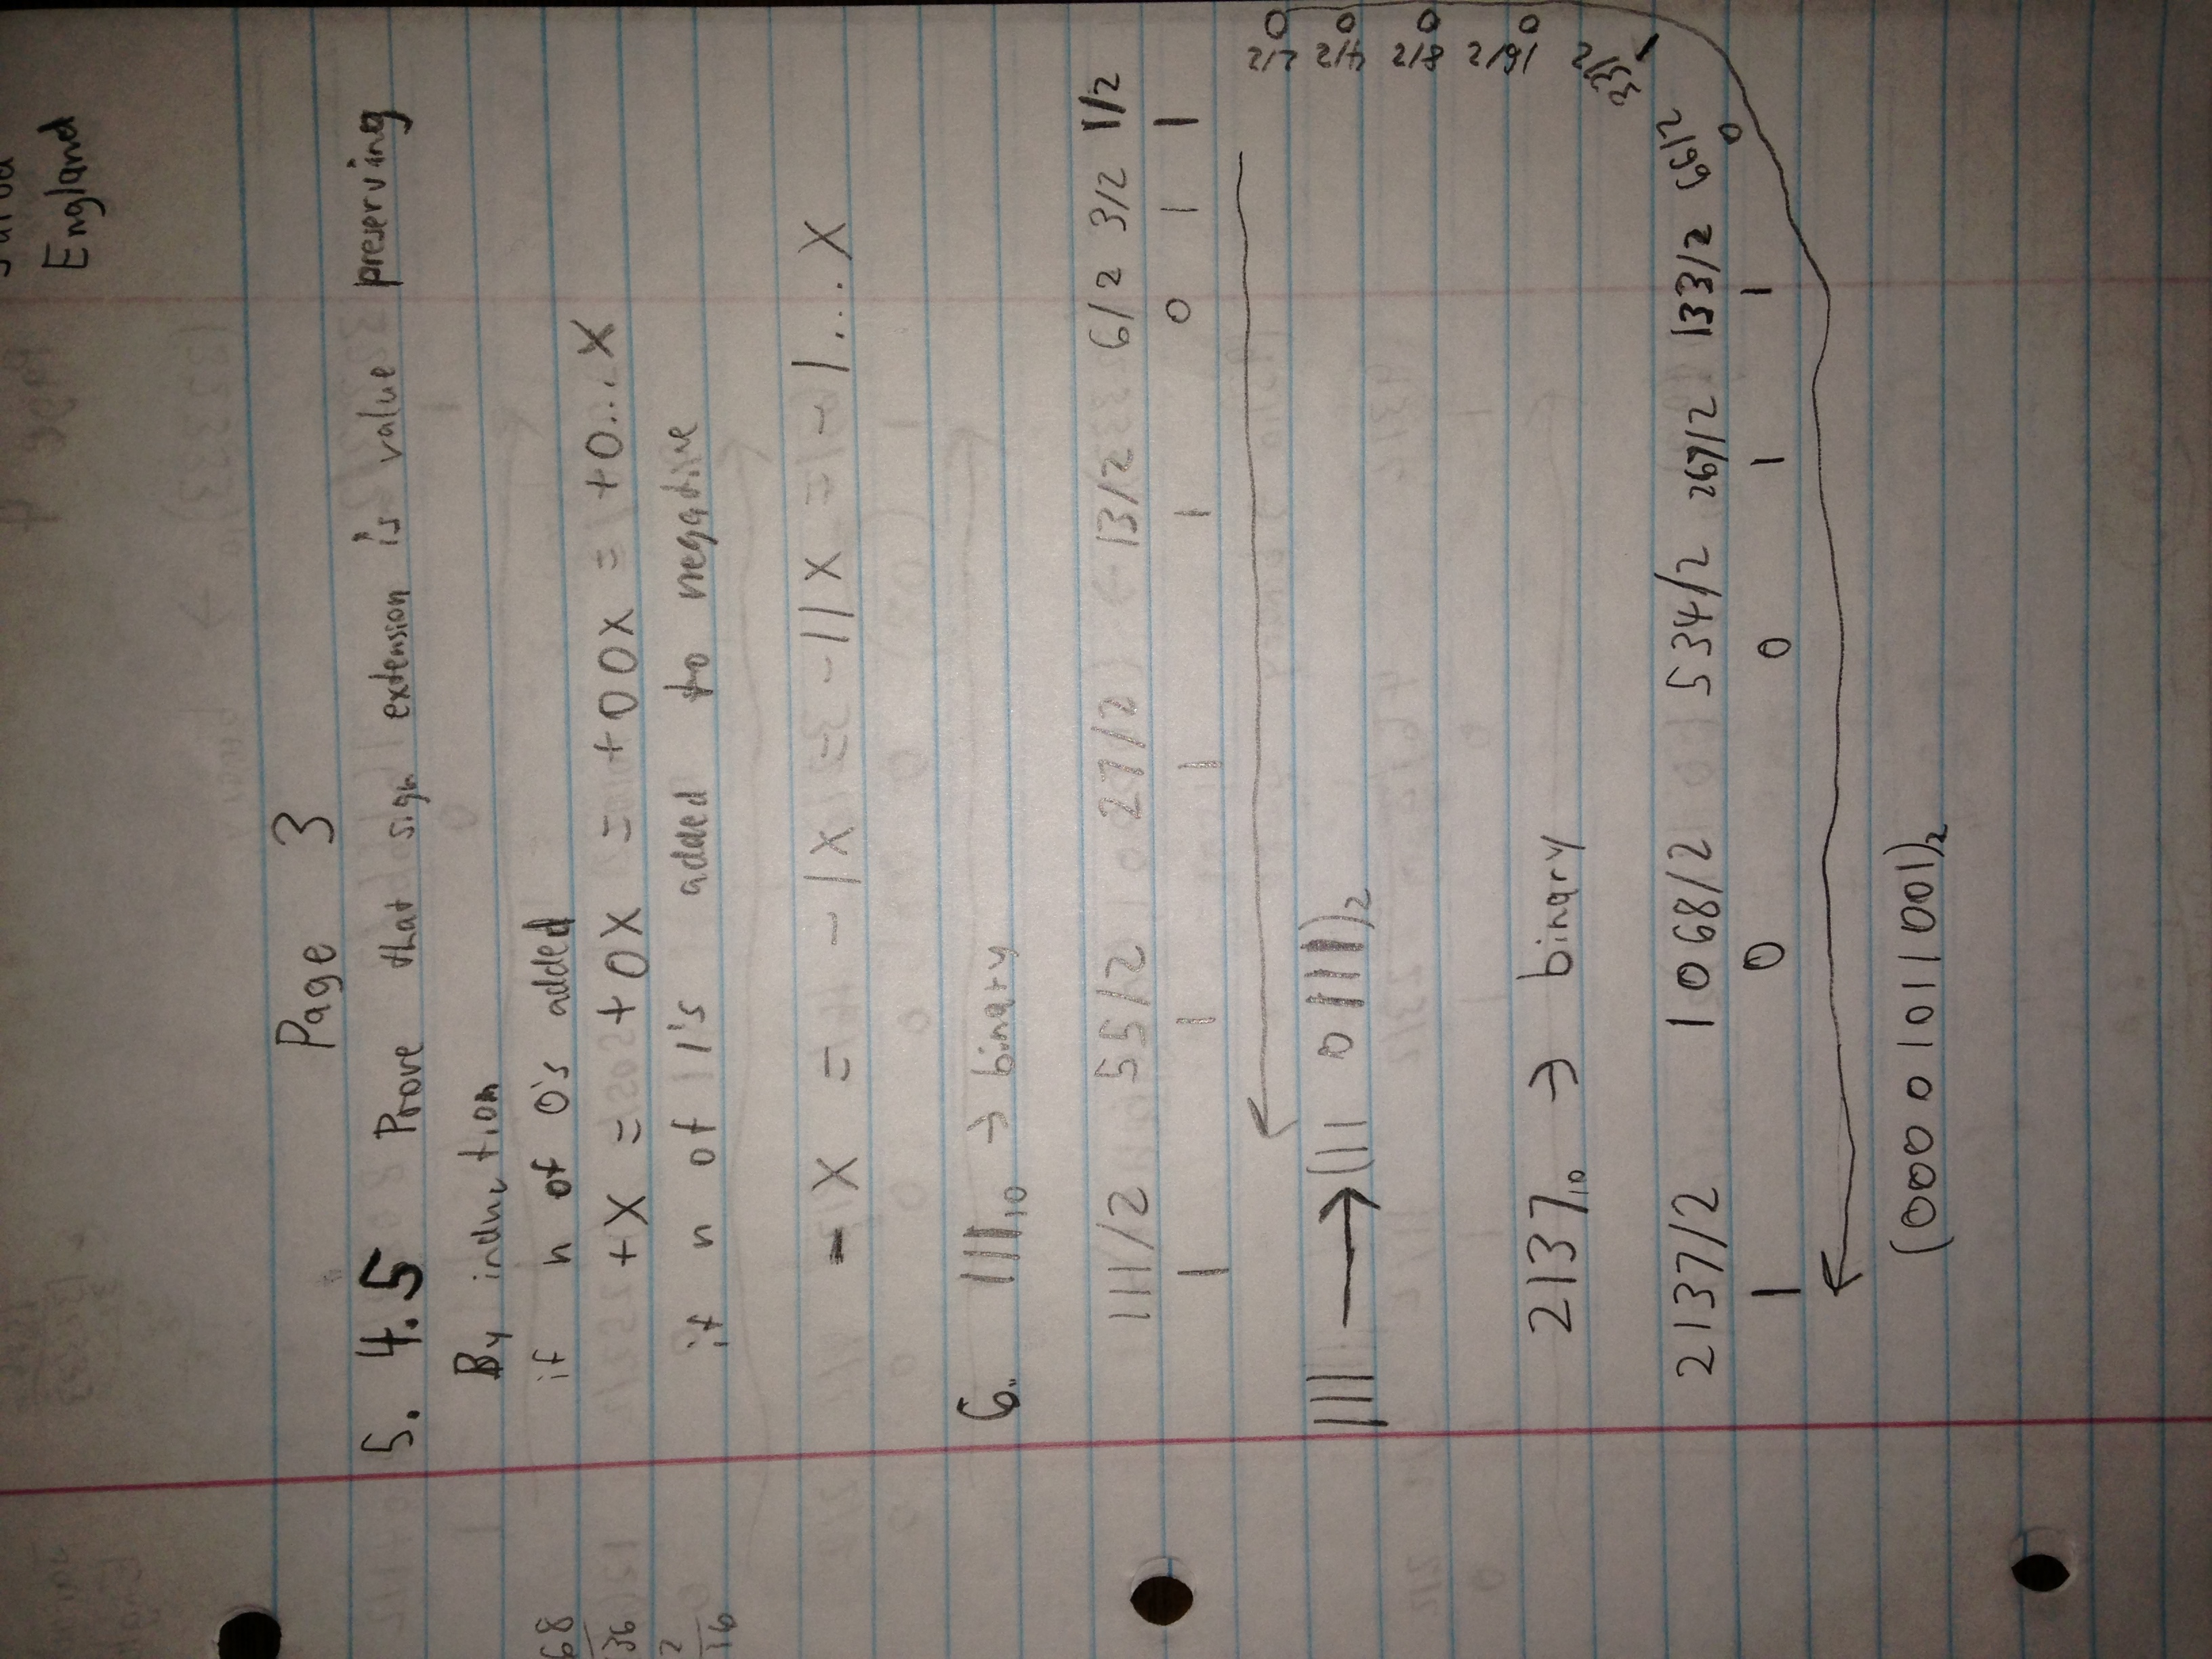 England
Page 3
5. 4.5 Prove that sign extension is value preserving
By induction
if n of 0's added
+X = +0X = +00X = +0...X
if n of 1's added to negative
- X = -1X = -11X = -1...X
6. 111₁₀ → binary
111/2 55/2 27/2 13/2 6/2 3/2 1/2
1 1 1 1 0 1 1
111 → (11 0111)₂
2137₁₀ → binary
2137/2 1068/2 534/2 267/2 133/2 66/2 33/2
1 0 0 1 1 0 1
0 0 0 0
(00001011001)₂
68
36
2
16